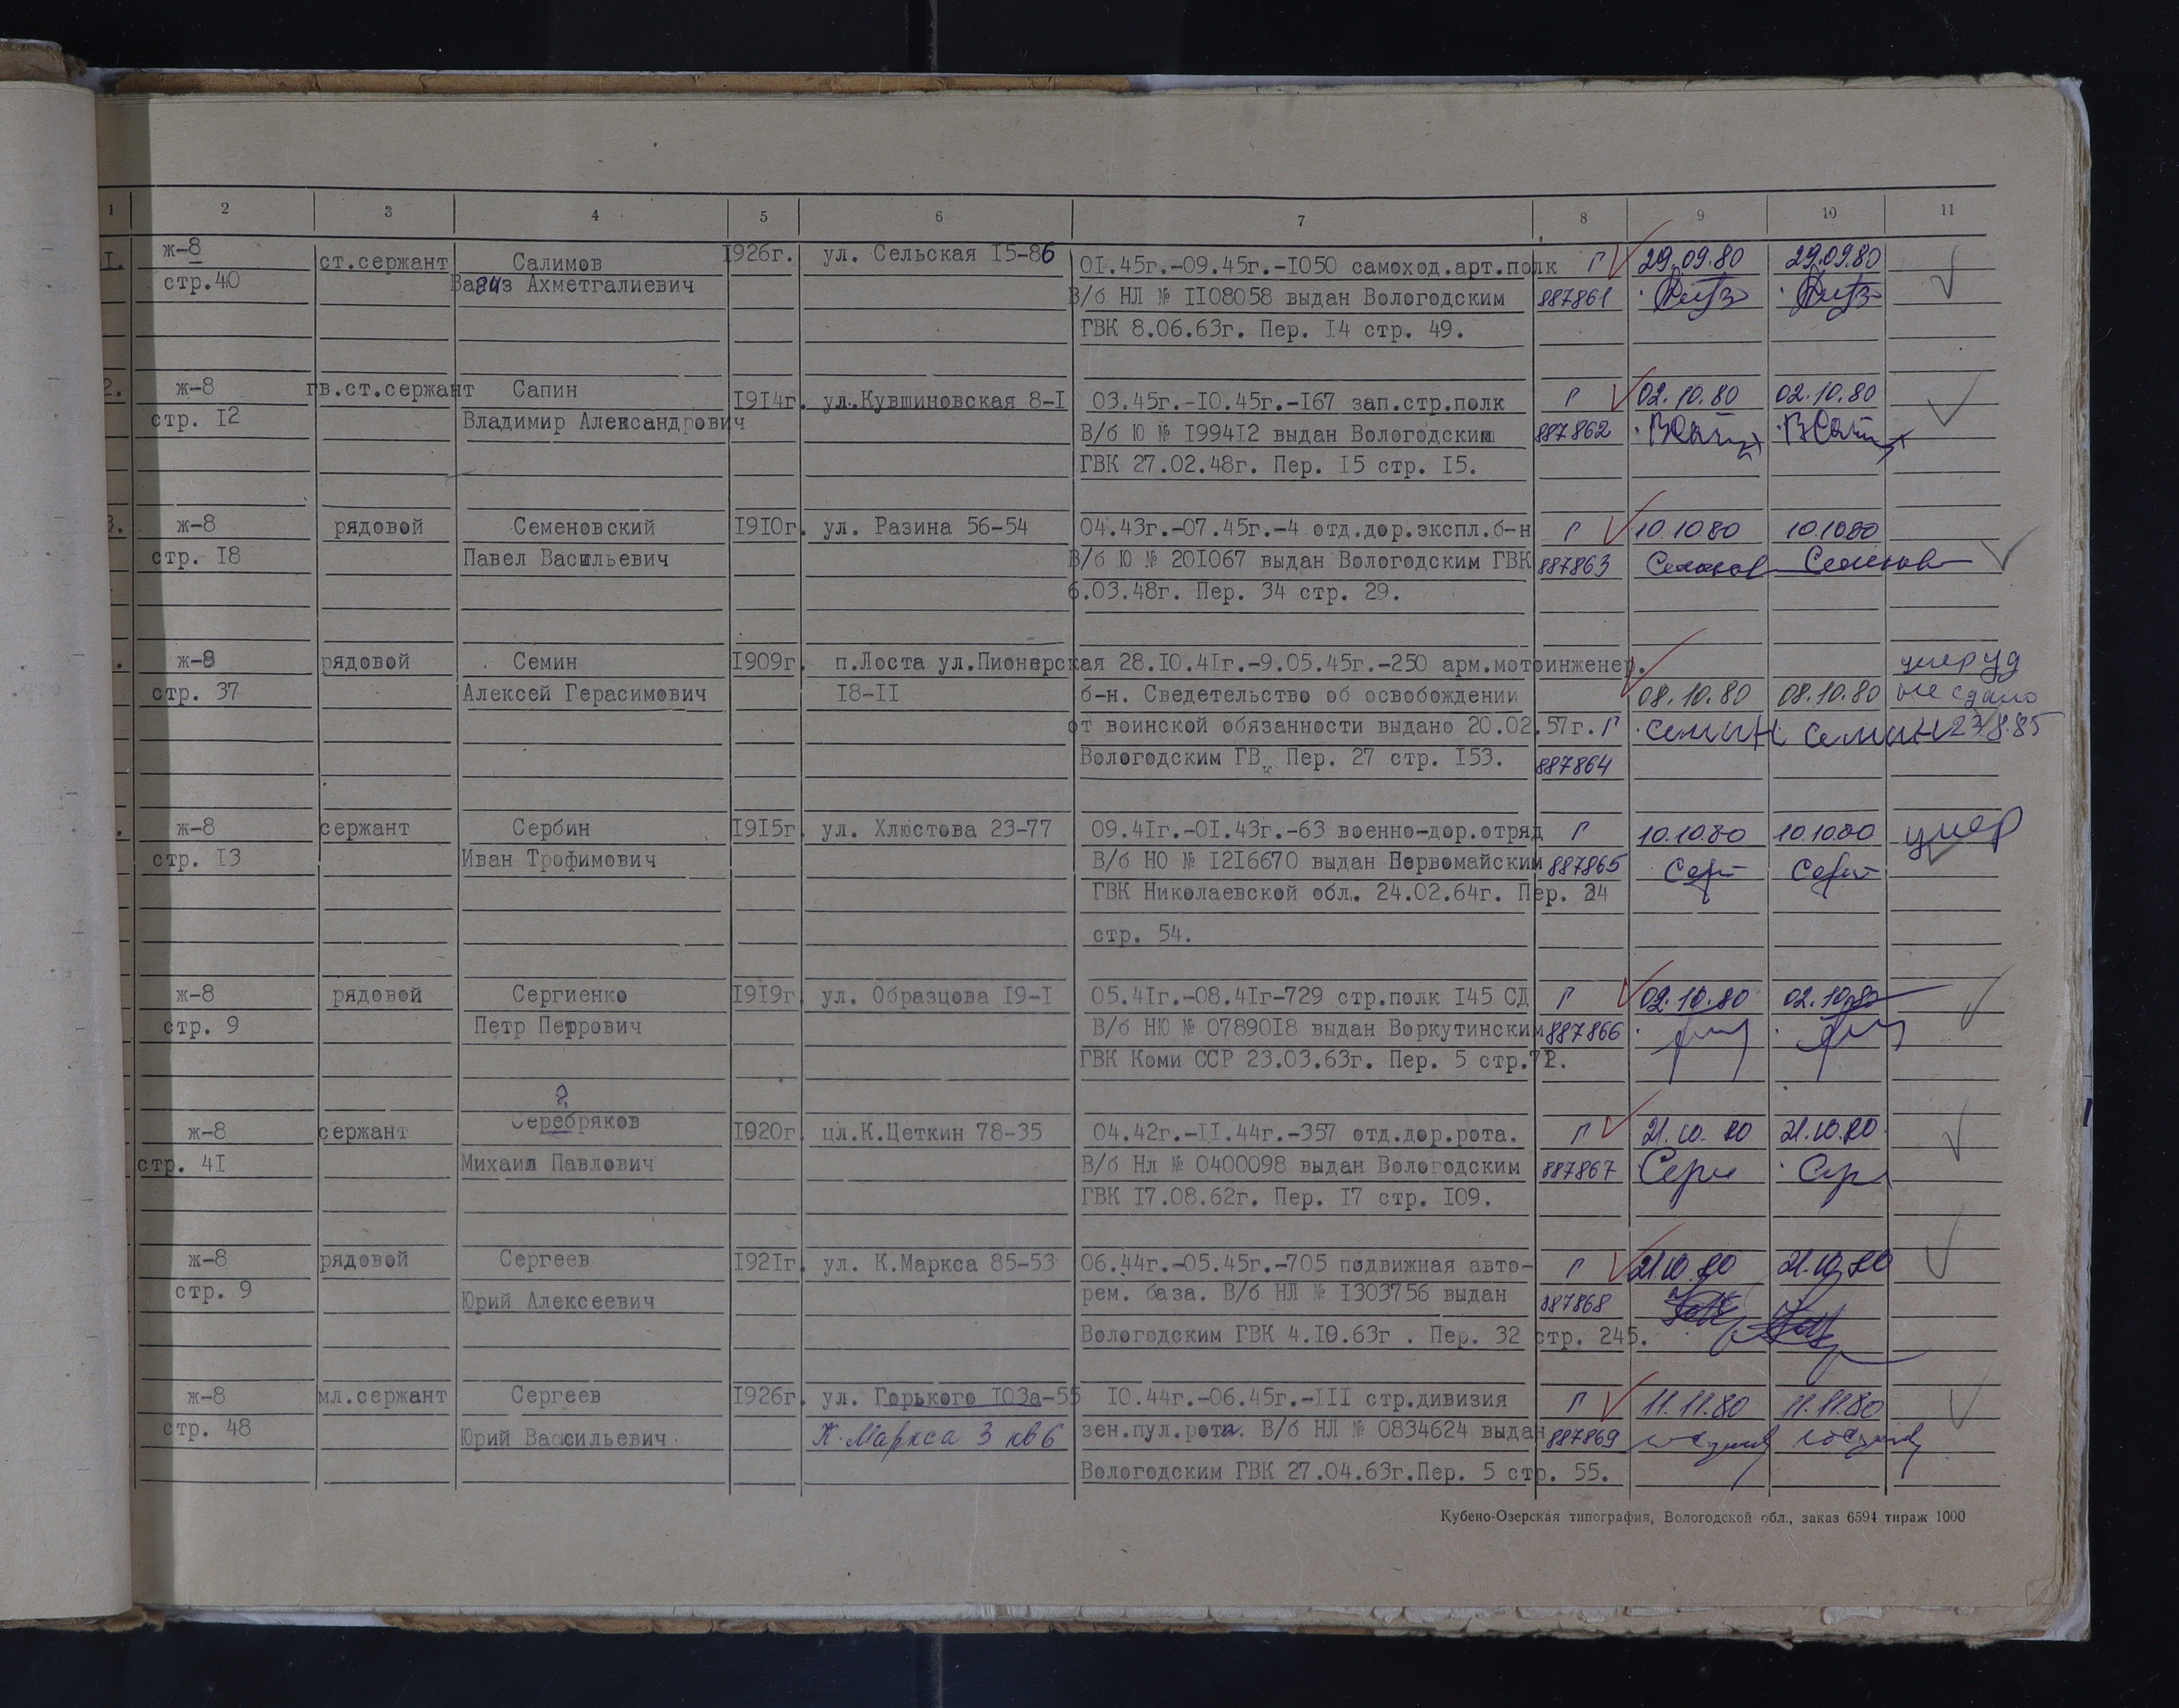 1 2 3 4 5 6 7 8 9 10 11
1. ж-8 ст.сержант Салимов 1926г. ул. Сельская 15-86 01.45г.-09.45г.-1050 самоход.арт.полк Г 29.09.80 29.09.80
стр.40 Вагиз Ахметгалиевич В/б НЛ № 1108058 выдан Вологодским 887861
ГВК 8.06.63г. Пер. 14 стр. 49.
2. ж-8 гв.ст.сержант Сапин 1914г. ул.Кувшиновская 8-1 03.45г.-10.45г.-167 зап.стр.полк Г 02.10.80 02.10.80
стр. 12 Владимир Александрович В/б Ю № 199412 выдан Вологодским 887862
ГВК 27.02.48г. Пер. 15 стр. 15.
3. ж-8 рядовой Семеновский 1910г. ул. Разина 56-54 04.43г.-07.45г.-4 отд.дор.экспл.б-н Г 10.10.80 10.10.80
стр. 18 Павел Васильевич В/б Ю № 201067 выдан Вологодским ГВК 887863
6.03.48г. Пер. 34 стр. 29.
ж-8 рядовой Семин 1909г. п.Лоста ул.Пионерская 28.10.41г.-9.05.45г.-250 арм.мотоинженер. умер уд
стр. 37 Алексей Герасимович 18-11 б-н. Сведетельство об освобождении 08.10.80 08.10.80 не сдано
от воинской обязанности выдано 20.02.57г. Г Семин Семин 23.8.85
Вологодским ГВк Пер. 27 стр. 153. 887864
ж-8 сержант Сербин 1915г. ул. Хлюстова 23-77 09.41г.-01.43г.-63 военно-дор.отряд Г 10.10.80 10.10.80 умер
стр. 13 Иван Трофимович В/б НО № 1216670 выдан Первомайским 887865
ГВК Николаевской обл. 24.02.64г. Пер. 24
стр. 54.
ж-8 рядовой Сергиенко 1919г. ул. Образцова 19-1 05.41г.-08.41г-729 стр.полк 145 СД Г 02.10.80 02.10.80
стр. 9 Петр Петрович В/б НЮ № 0789018 выдан Воркутинским 887866
ГВК Коми ССР 23.03.63г. Пер. 5 стр.72.
?
ж-8 сержант Серебряков 1920г. цл.К.Цеткин 78-35 04.42г.-11.44г.-357 отд.дор.рота. Г 21.10.80 21.10.80
стр. 41 Михаил Павлович В/б Нл № 0400098 выдан Вологодским 887867
ГВК 17.08.62г. Пер. 17 стр. 109.
ж-8 рядовой Сергеев 1921г. ул. К.Маркса 85-53 06.44г.-05.45г.-705 подвижная авто- Г 21.10.80 21.10.80
стр. 9 Юрий Алексеевич рем. база. В/б НЛ № 1303756 выдан 887868
Вологодским ГВК 4.10.63г . Пер. 32 стр. 245.
ж-8 мл.сержант Сергеев 1926г. ул. Горького 103а-55 10.44г.-06.45г.-111 стр.дивизия Г 11.11.80 11.11.80
стр. 48 Юрий Васильевич К.Маркса 3 кв 6 зен.пул.рота. В/б НЛ № 0834624 выдан 887869
Вологодским ГВК 27.04.63г.Пер. 5 стр. 55.
Кубено-Озерская типография, Вологодской обл., заказ 6594 тираж 1000